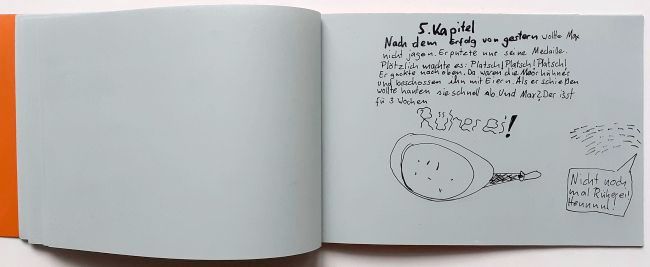 5. Kapitel
Nach dem Erfolg von gestern wollte Max
nicht jagen. Er putzte nur seine Medaille.
Plötzlich machte es: Platsch! Platsch! Platsch!
Er guckte nach oben. Da waren die Moorhühner
und beschossen ihn mit Eiern. Als er schießen
wollte hauten sie schnell ab. Und Max? Der isst
für 3 Wochen
Rührei!
Nicht noch
mal Rührei!